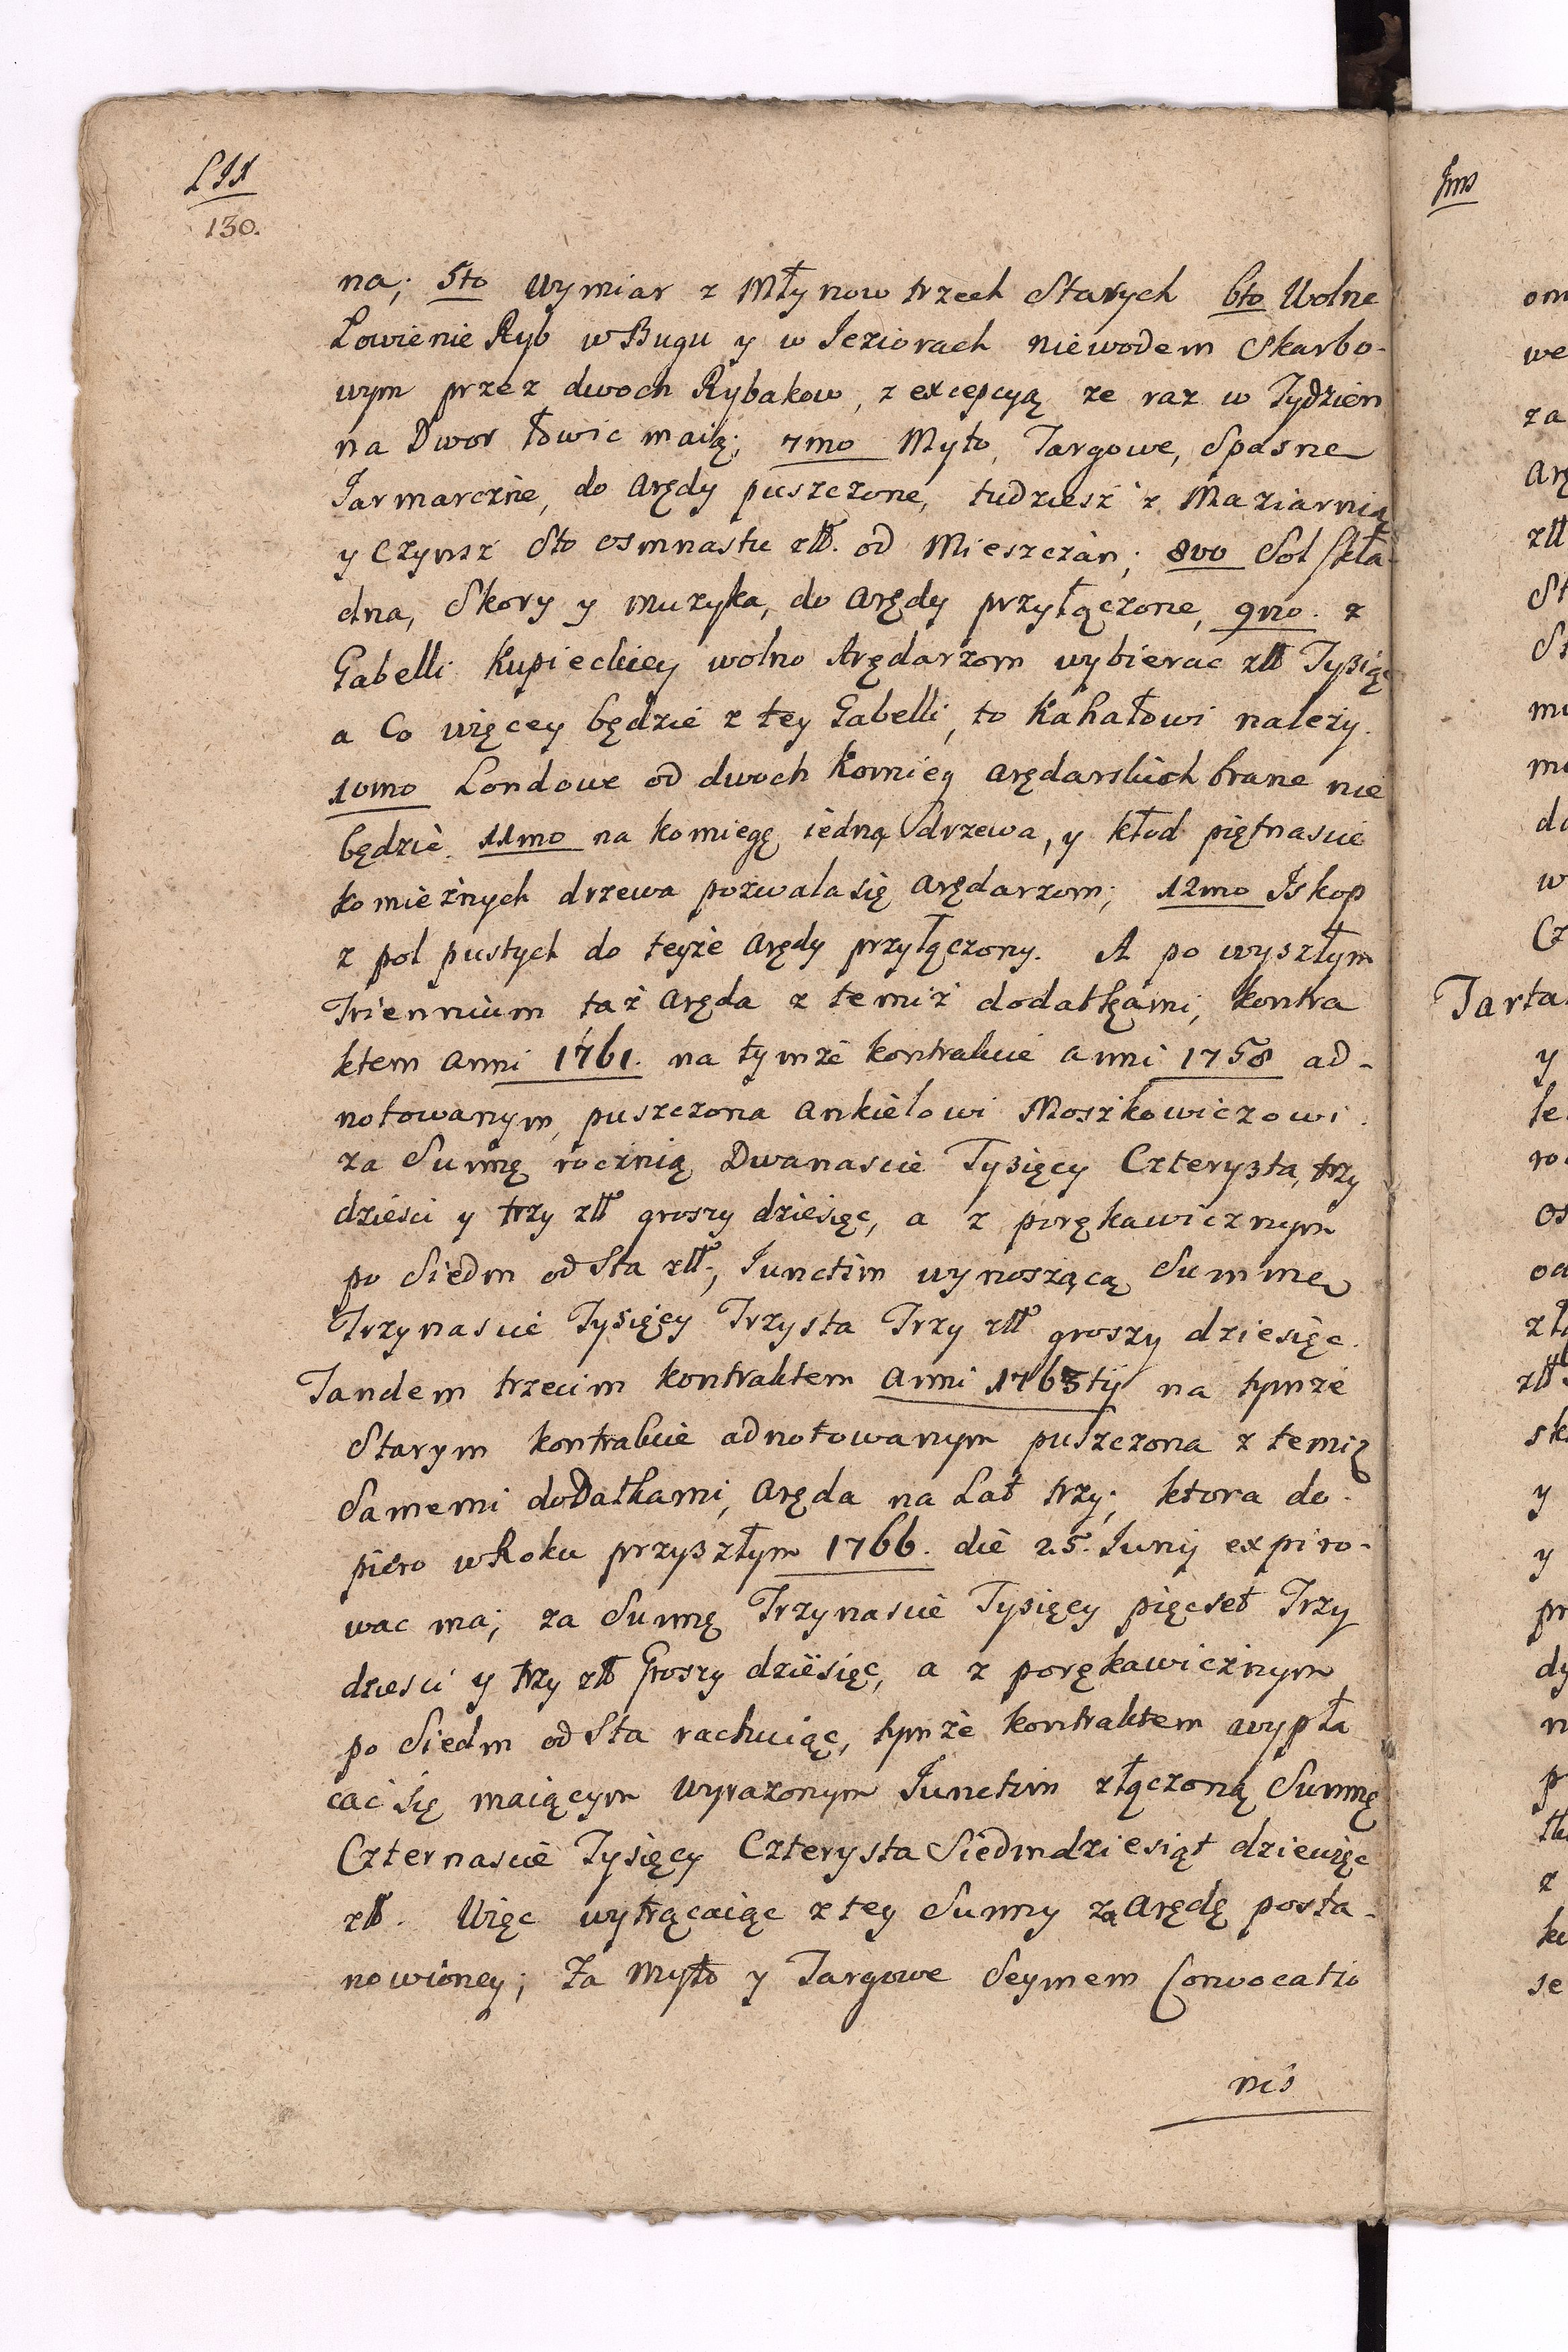 LIX
130.
na; 5to Wymiar z Młynow trzech Starych 6to Wolne
Lowienie Ryb w Bugu y w Ieziorach niewodem Skarbo-
wym przez dwoch Rybakow, z excepcyą ze raz w Tydzien
na Dwor łowic maią; 7mo Myto, Targowe, Spasne
Jarmarczne, do Arędy puszczone, tudziesz z Maziarnią
y Czynsz Sto osmnastu złł. od Mieszczan; 8vo Sol skła-
dna, Skory y muzyka, do Arędy przyłączone, 9no. z
Gabelli Kupieckiey wolno Arędarzom wybierac złł Tysiąc
a Co więcey będzie z tey Gabelli, to Kahałowi nalezy.
10mo Londowe od dwoch Komieg arędarskich brane nie
będzie. 11mo na komiegę iedną drzewa, y kłod piętnascie
komieżnych drzewa pozwala się arędarzom; 12mo Iskop
z pol pustych do teyże Arędy przyłączony. A po wyszłym
Triennium taż Aręda z temiż dodatkami, kontra
ktem anni 1761. na tymże kontrakcie anni 1758 ad-
notowanym, puszczona Ankielowi Moszkowiczowi
za Summę roczną Dwanascie Tysięcy Czterysta, trzy
dziesci y trzy złł groszy dziesięc, a z porękawicznym
po Siedm od Sta złł., Iunctim wynoszącą Summę
Trzynascie Tysięcy Trzysta Trzy złł groszy dziesięc.
Tandem trzecim kontraktem anni 1763tij na tymże
Starym kontrakcie adnotowanym puszczona z temiż
Samemi dodatkami, Aręda na Lat trzy; ktora do-
piero w Roku przyszłym 1766. die 25. Iunij expiro-
wac ma; za Summę Trzynascie Tysięcy pięcset Trzy
dziesci y trzy złł Groszy dziesięc, a z porękawicznym
po Siedm od Sta rachuiąc, tymże kontraktem wypła
cać się maiącym wyrazonym Iunctim złączoną Summę
Czternascie Tysięcy Czterysta Siedmdziesiąt dziewięc
złł. Więc wytrącaiąc z tey Summy za Arędę posta-
nowioney; za Myto y Targowe Seymem Convocatio
nis